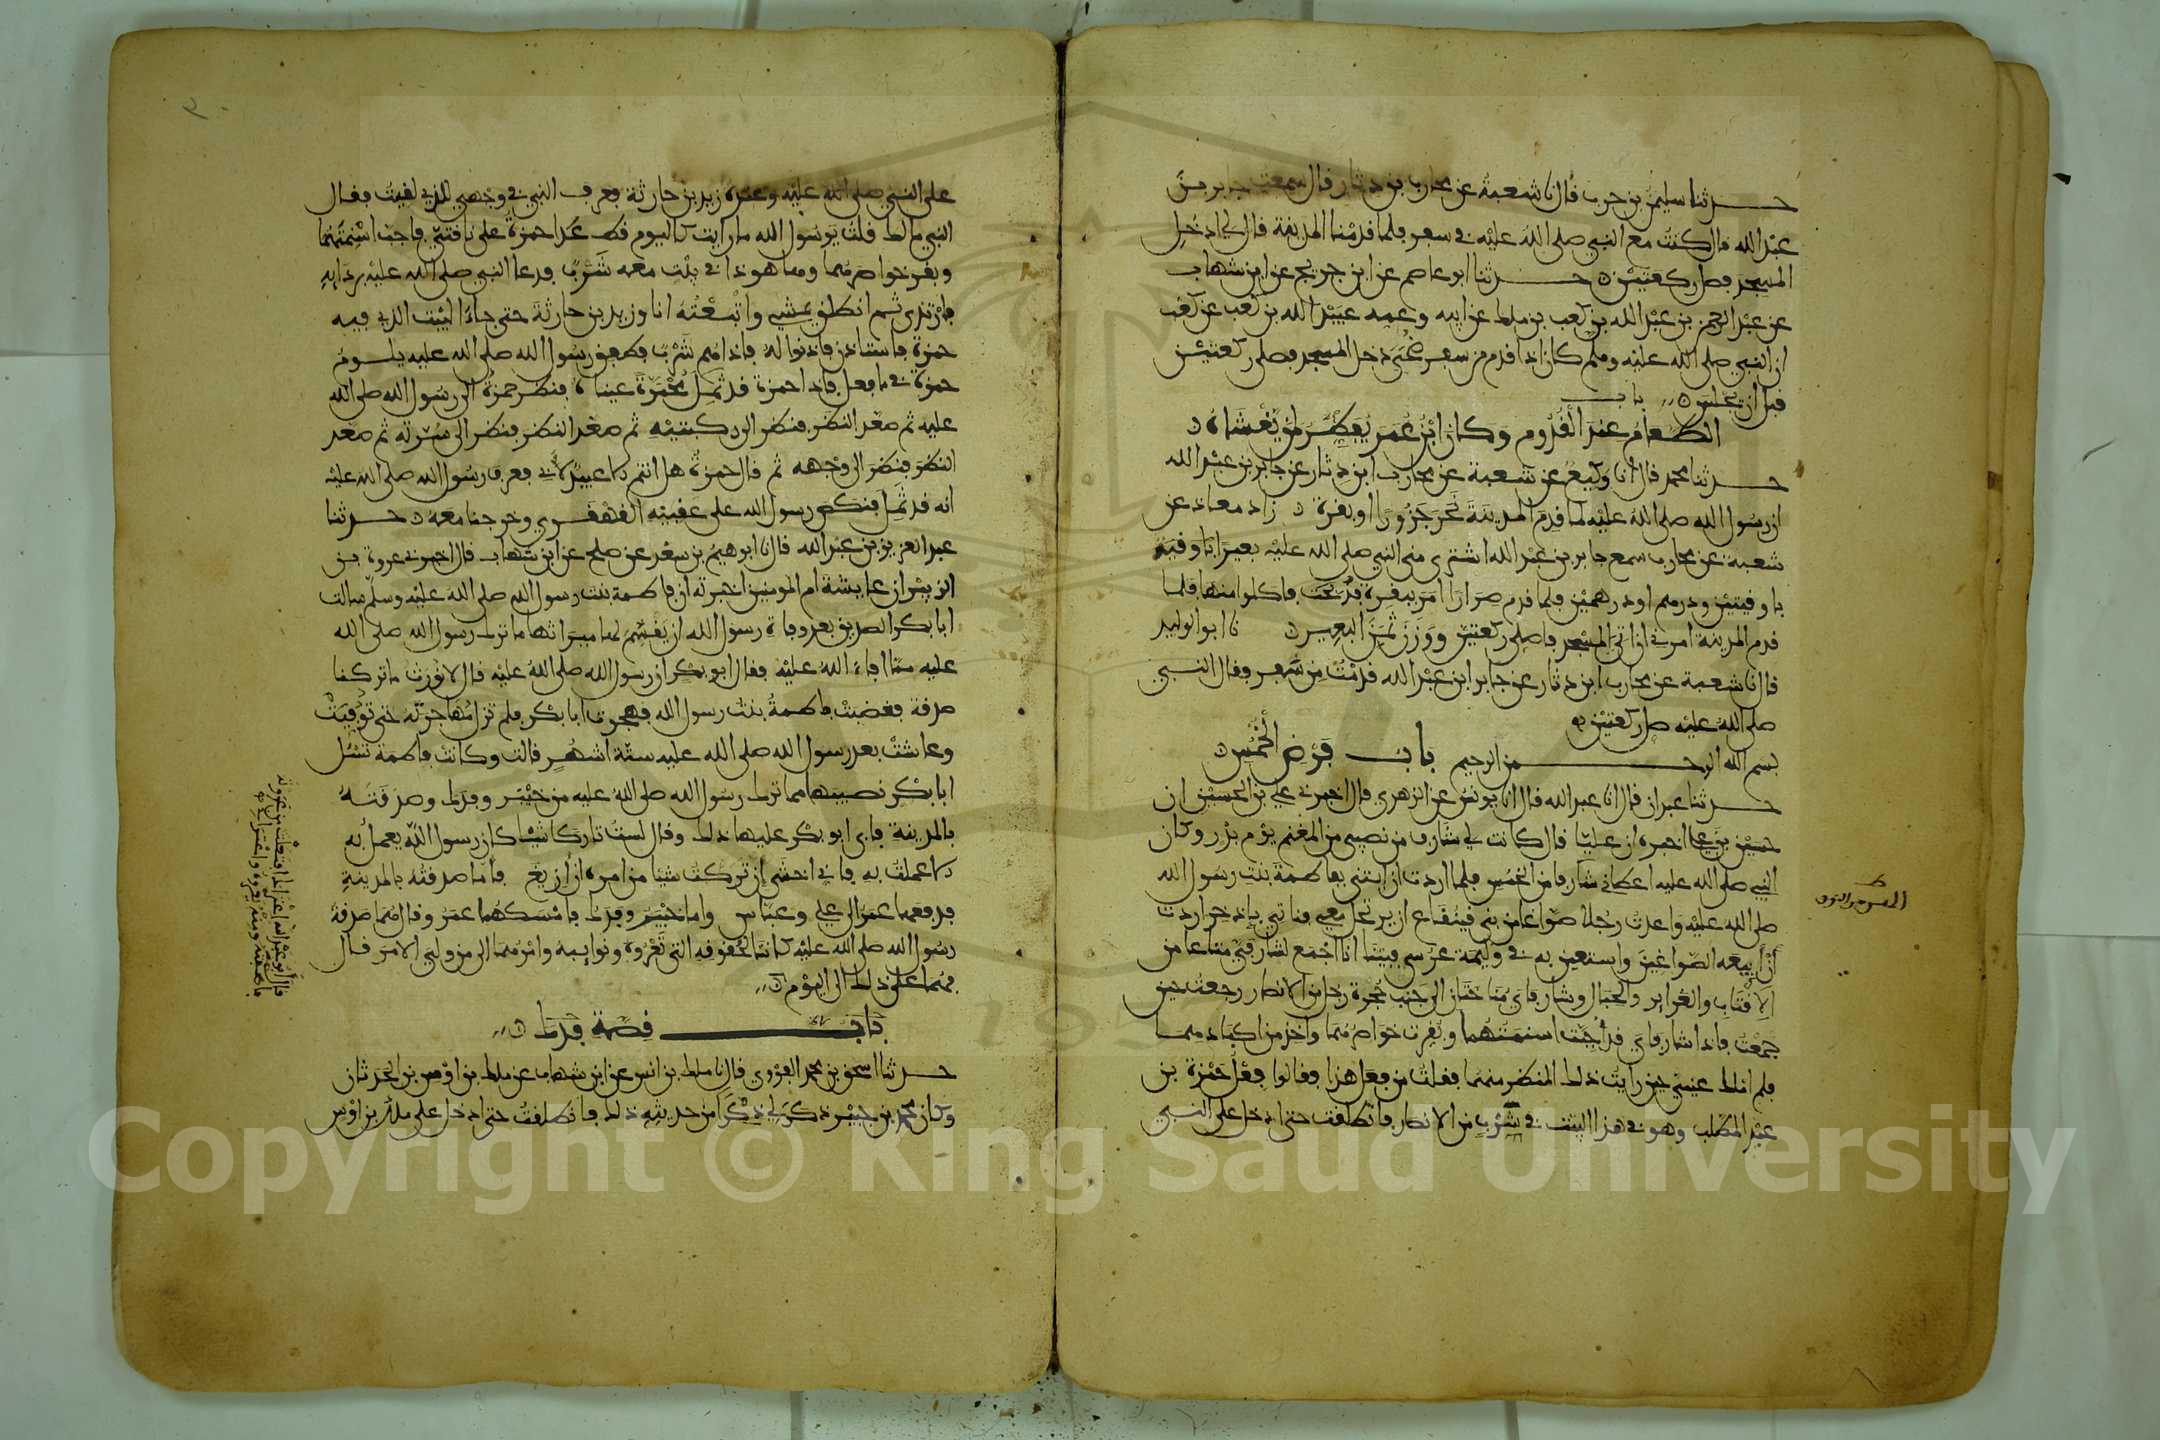 حدثنا سليمن بن حرب قال نا شعبة عن محارب بن دثار قال سمعت جابر بن
عبد الله قال كنت مع النبي صلى الله عليه في سفر فلما قدمنا المدينة قال لي ادخل
المسجد فصل ركعتين حدثنا ابو عاصم عن ابن جريج عن ابن شهاب
عن عبد الرحمن بن عبد الله بن كعب بن ملك عن ابيه وعمه عبيد الله بن كعب عن كعب
ان النبي صلى الله عليه وسلم كان اذا قدم من سفر ضحى دخل المسجد فصلى ركعتين
قبل ان يجلس باب
الطعام عند القدوم وكان ابن عمر يفطر لمن يغشاه
حدثنا محمد قال انا وكيع عن شعبة عن محارب ابن دثار عن جابر بن عبد الله
ان رسول الله صلى الله عليه لما قدم المدينة نحر جزورا او بقرة زاد معاذ عن
شعبة عن محارب سمع جابر بن عبد الله اشترى مني النبي صلى الله عليه بعيرا باوقية
باوقيتين ودرهم او درهمين فلما قدم صرارا امر ببقرة فذبحت فاكلوا منها فلما
قدم المدينة امرني ان اتي المسجد فاصلي ركعتين ووزن ثمن البعير نا ابو الوليد
قال نا شعبة عن محارب ابن دثار عن جابر ابن عبد الله قدمت من سفر فقال النبي
صلى الله عليه صل ركعتين
بسم الله الرحمن الرحيم باب فرض الخمس
حدثنا عبدان قال انا عبد الله قال انا يونس عن الزهري قال اخبرني علي بن الحسين ان
حسين بن علي اخبره ان عليا قال كانت لي شارف من نصيبي من المغنم يوم بدر وكان
النبي صلى الله عليه اعطاني شارفا من الخمس فلما اردت ان ابتني بفاطمة بنت رسول الله
صلى الله عليه واعدت رجلا صواغا من بني قينقاع ان يرتحل معي فناتي باذخر اردت
ان ابيعه الصواغين واستعين به في وليمة عرسي فبينا انا اجمع لشارفي متاعا من
الاقتاب والغراير والحبال وشارفاي مناختان الى جنب حجرة رجل من الانصار رجعت حين
جمعت فاذا شارفاي قد اجبت اسنمتهما وبقرت خواصرهما واخذ من اكبادهما
فلم املك عيني حين رايت ذلك المنظر منهما فقلت من فعل هذا فقالوا فعل حمزة بن
عبد المطلب وهو في هذا البيت في شرب من الانصار فانطلقت حتى ادخل على النبي
على النبي صلى الله عليه وعنده زيد بن حارثة فعرف النبي في وجهي الذي لقيت فقال
النبي ما لك قلت يرسول الله ما رايت كاليوم قط عدا حمزة على ناقتي فاجب اسنمتهما
وبقر خواصرهما وها هو ذا في بيت معه شرب فدعا النبي صلى الله عليه بردايه
فارتدى ثم انطلق يمشي واتبعته انا وزيد بن حارثة حتى جاء البيت الذي فيه
حمزة فاستاذن فاذنوا له فاذا هم شرب فطفق رسول الله صلى الله عليه يلوم
حمزة في ما فعل فاذا حمزة قد ثمل محمرة عيناه فنظر حمزة الى رسول الله صلى الله
عليه ثم صعد النظر فنظر الى ركبتيه ثم صعد النظر فنظر الى سرته ثم صعد
النظر فنظر الى وجهه ثم قال حمزة هل انتم الا عبيد لابي فعرف رسول الله صلى الله عليه
انه قد ثمل فنكص رسول الله على عقبيه القهقرى وخرجنا معه حدثنا
عبد العزيز بن عبد الله قال نا ابرهيم بن سعد عن صلح عن ابن شهاب قال اخبرني عروة بن
الزبير ان عايشة ام المومنين اخبرته ان فاطمة بنت رسول الله صلى الله عليه وسلم سالت
ابا بكر الصديق بعد وفاة رسول الله ان يقسم لها ميراثها ما ترك رسول الله صلى الله
عليه مما افاء الله عليه فقال ابو بكر ان رسول الله صلى الله عليه قال لا نورث ما تركنا
صدقة فغضبت فاطمة بنت رسول الله فهجرت ابا بكر فلم تزل مهاجرته حتى توفيت
وعاشت بعد رسول الله صلى الله عليه ستة اشهر قالت وكانت فاطمة تسل
ابا بكر نصيبها مما ترك رسول الله صلى الله عليه من خيبر وفدك وصدقته
بالمدينة فابى ابو بكر عليها ذلك وقال لست تاركا شيا كان رسول الله يعمل به
الا عملت به فاني اخشى ان تركت شيا من امره ان ازيغ فاما صدقته بالمدينة
فدفعها عمر الى علي وعباس واما خيبر وفدك فامسكهما عمر وقال هما صدقة
رسول الله صلى الله عليه كانتا لحقوقه التي تعروه ونوايبه وامرهما الى من ولي الامر قال
فهما على ذلك الى اليوم
باب قصة فدك
حدثنا اسحق بن محمد الفروي قال نا ملك بن انس عن ابن شهاب عن ملك بن اوس بن الحدثان
وكان محمد بن جبير ذكر لي ذكرا من حديثه ذلك فانطلقت حتى ادخل على ملك بن اوس
قال ابو عبد الله اعتراك افتعلت من عروته
فاصبته ومنه يعروه واعتراني